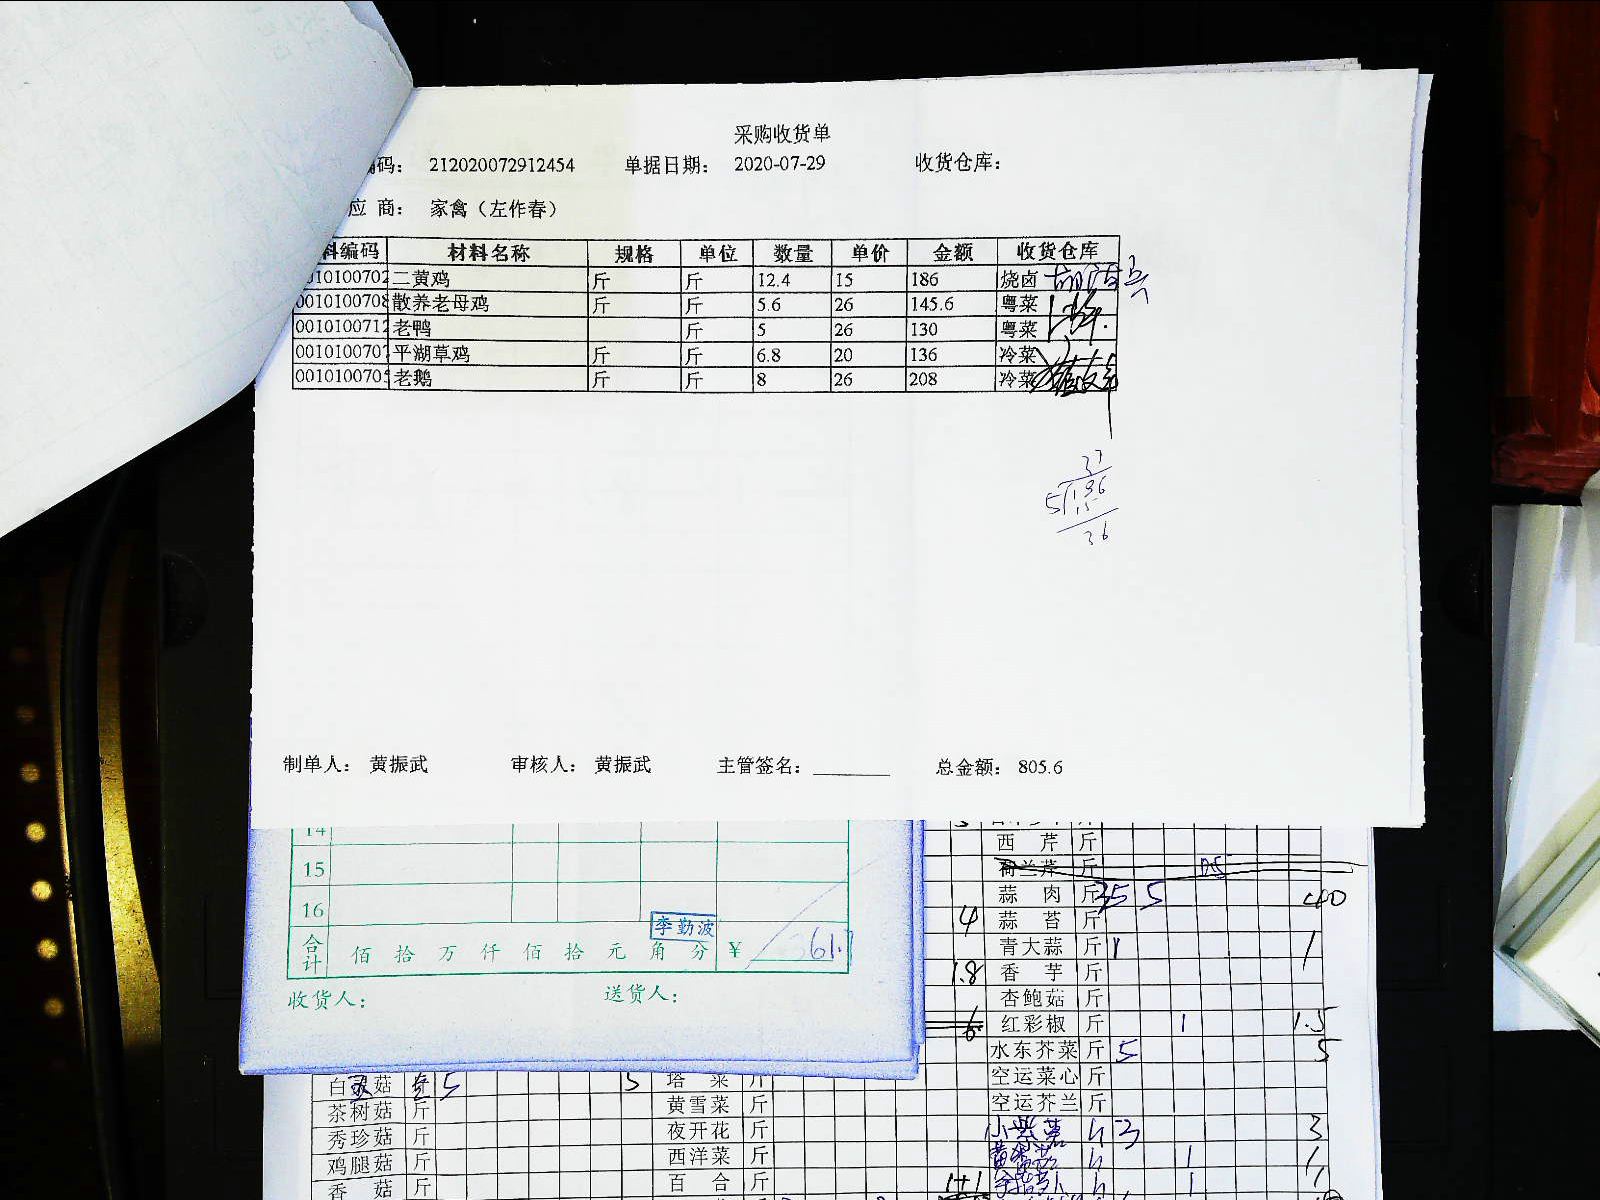 采购收货单
码: 212020072912454 单据日期: 2020-07-29 收货仓库:
应 商: 家禽（左作春）
料编码 材料名称 规格 单位 数量 单价 金额 收货仓库
010100702 二黄鸡 斤 斤 12.4 15 186 烧卤
0010100708 散养老母鸡 斤 斤 5.6 26 145.6 粤菜
0010100712 老鸭 斤 5 26 130 粤菜
0010100707 平湖草鸡 斤 斤 6.8 20 136 冷菜
0010100705 老鹅 斤 斤 8 26 208 冷菜
37
5 186
15
36
制单人: 黄振武 审核人: 黄振武 主管签名: 总金额: 805.6
14
15
16
李勤波
合计 佰 拾 万 仟 佰 拾 元 角 分 ¥ 361.
收货人: 送货人:
西 芹 斤
荷兰芹 斤
蒜 肉 斤 35 5 40
4 蒜 苔 斤
青大蒜 斤 1 1
1.8 香 芋 斤
杏鲍菇 斤
6 红彩椒 斤 1 1.5
水东芥菜 斤 5 5
空运菜心 斤
空运芥兰 斤
3 3
1 1
1+1 1 1
白灵菇 5 5 塔 菜 斤
茶树菇 斤 黄雪菜 斤
秀珍菇 斤 夜开花 斤
鸡腿菇 斤 西洋菜 斤
香 菇 斤 百 合 斤